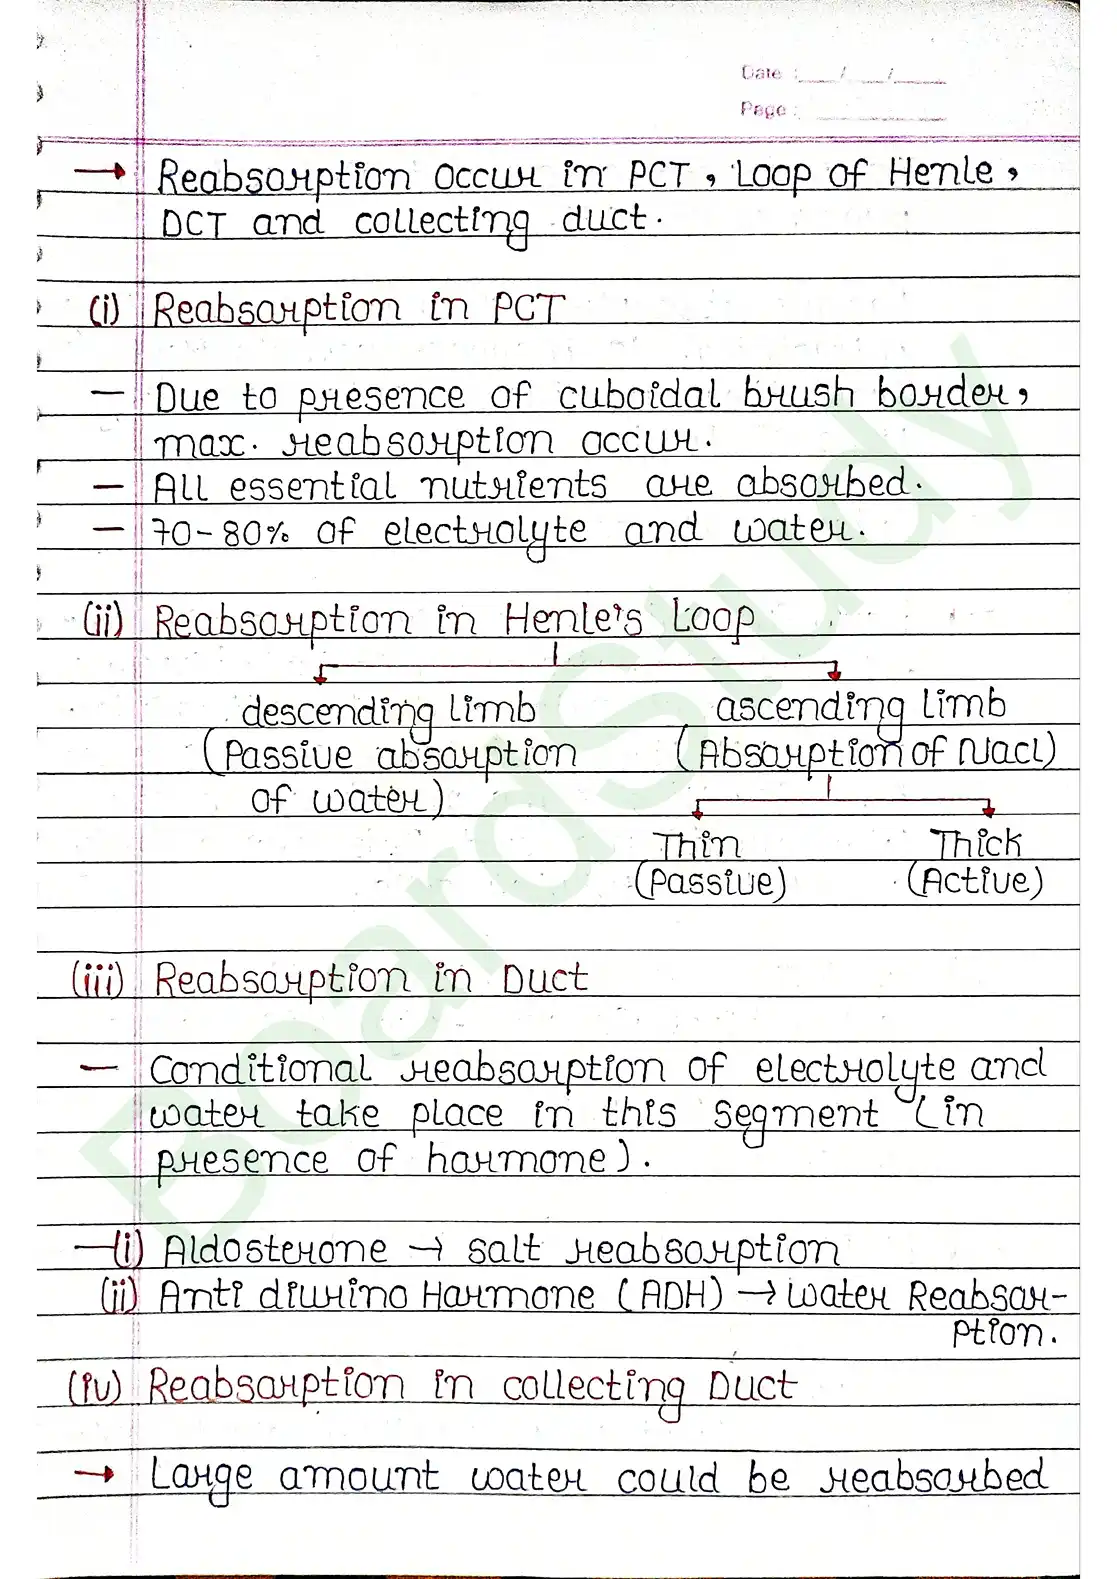 Date : ___/___/____
Page : ________
→ Reabsorption occur in PCT, Loop of Henle,
DCT and collecting duct.
(i) Reabsorption in PCT
— Due to presence of cuboidal brush border,
max. reabsorption occur.
— All essential nutrients are absorbed.
— 70-80% of electrolyte and water.
(ii) Reabsorption in Henle's Loop
descending limb ascending limb
(Passive absorption (Absorption of Nacl)
of water)
Thin Thick
(Passive) (Active)
(iii) Reabsorption in Duct
— Conditional reabsorption of electrolyte and
water take place in this segment (in
presence of hormone).
—(i) Aldosterone → salt reabsorption
(ii) Anti diurino Hormone (ADH) → water Reabsor-
ption.
(iv) Reabsorption in collecting Duct
→ Large amount water could be reabsorbed
BoardStudy